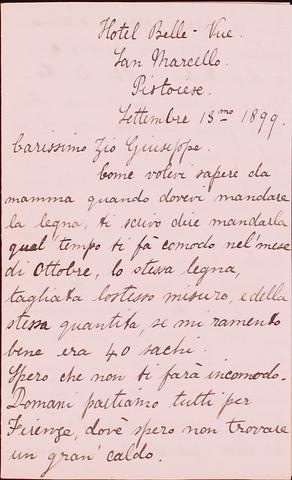 Hotel Belle-Vue.
San Marcello.
Pistoiese.
Settembre 13mo 1899.
Carissimo Zio Giuseppe.
Come volevi sapere da
mamma quando dovevi mandare
la legna, ti scrivo di mandarla
qual tempo ti fa comodo nel mese
di Ottobre, lo stessa legna,
tagliata lostesso misuro, e della
stessa quantita, se mi ramento
bene era 40 sachi.
Spero che non ti farà incomodo.
Domani partiamo tutti per
Firenze, dove spero non trovare
un gran' caldo.